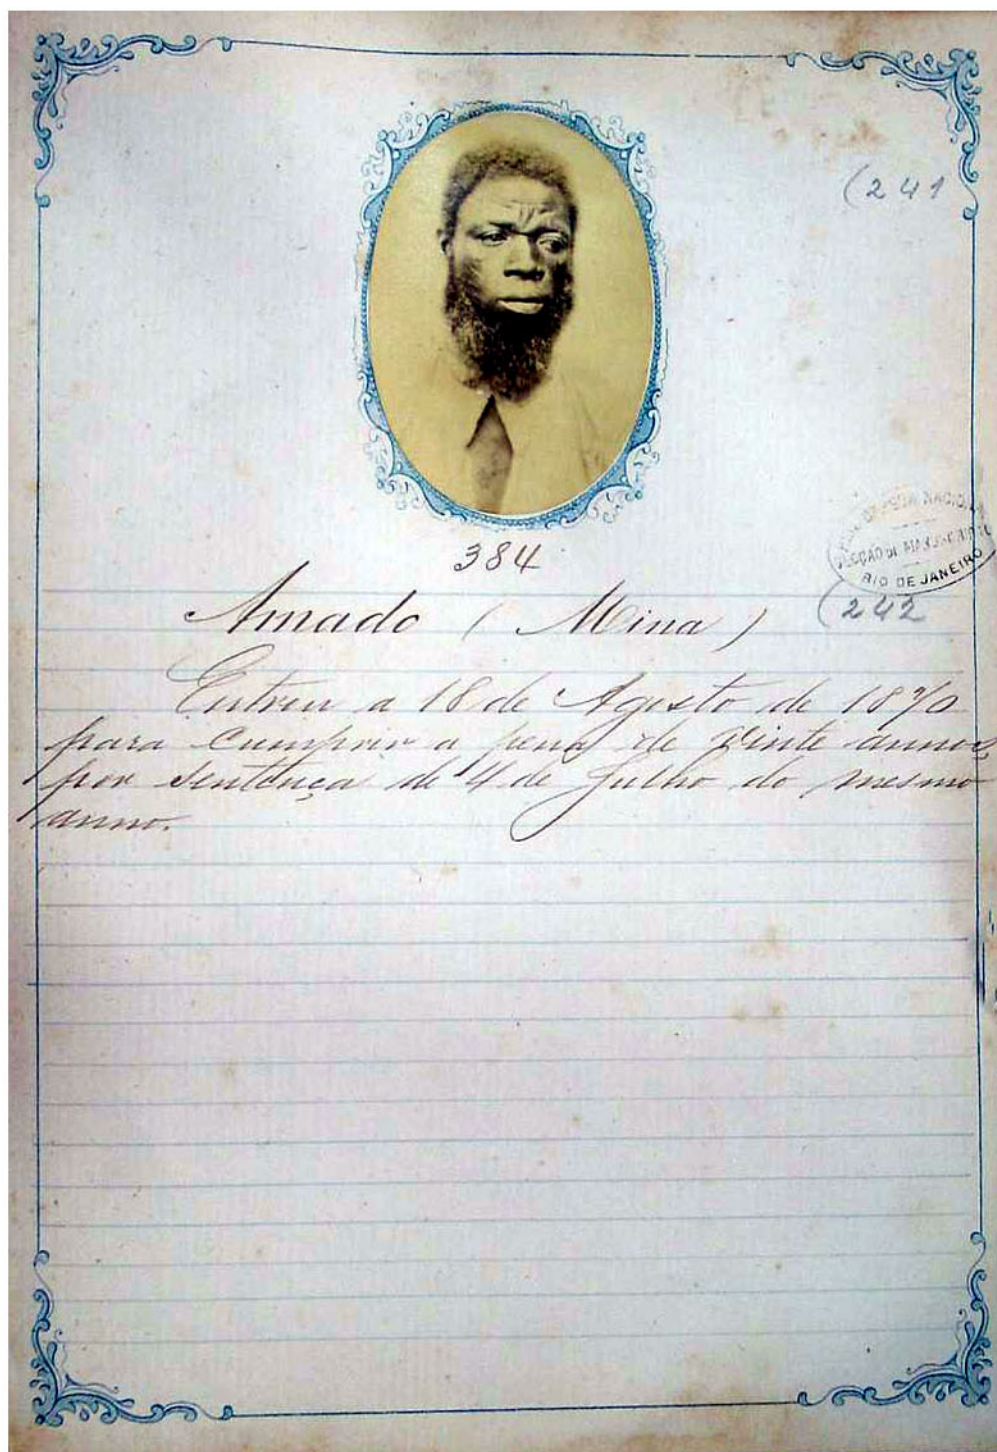 (241
384
BIBLIOTHECA NACIONAL
SECÇÃO DE MANUSCRIPTOS
RIO DE JANEIRO
(242
Amado (Mina)
Entrou a 18 de Agosto de 1870
para cumprir a pena de vinte annos,
por sentença de 4 de Julho do mesmo
anno.